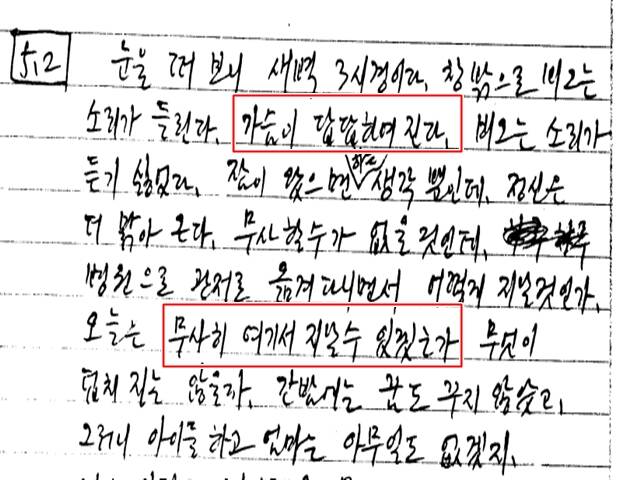 5.2 눈을 떠 보니 새벽 3시경이다. 창 밖으로 비오는
소리가 들린다. 가슴이 답답하여 진다. 비오는 소리가
듣기 싫었다. 잠이 왔으면 하는 생각 뿐인데, 정신은
더 밝아 온다. 무사할 수가 없을 것인데,
병원으로 관저로 옮겨 다니면서 어떻게 지낼것인가.
오늘은 무사히 여기서 지날수 있겠는가 무엇이
덮쳐 질는 않을까. 간밤에는 꿈도 꾸지 않았고,
그러니 아이들 하고 엄마는 아무일도 없겠지.